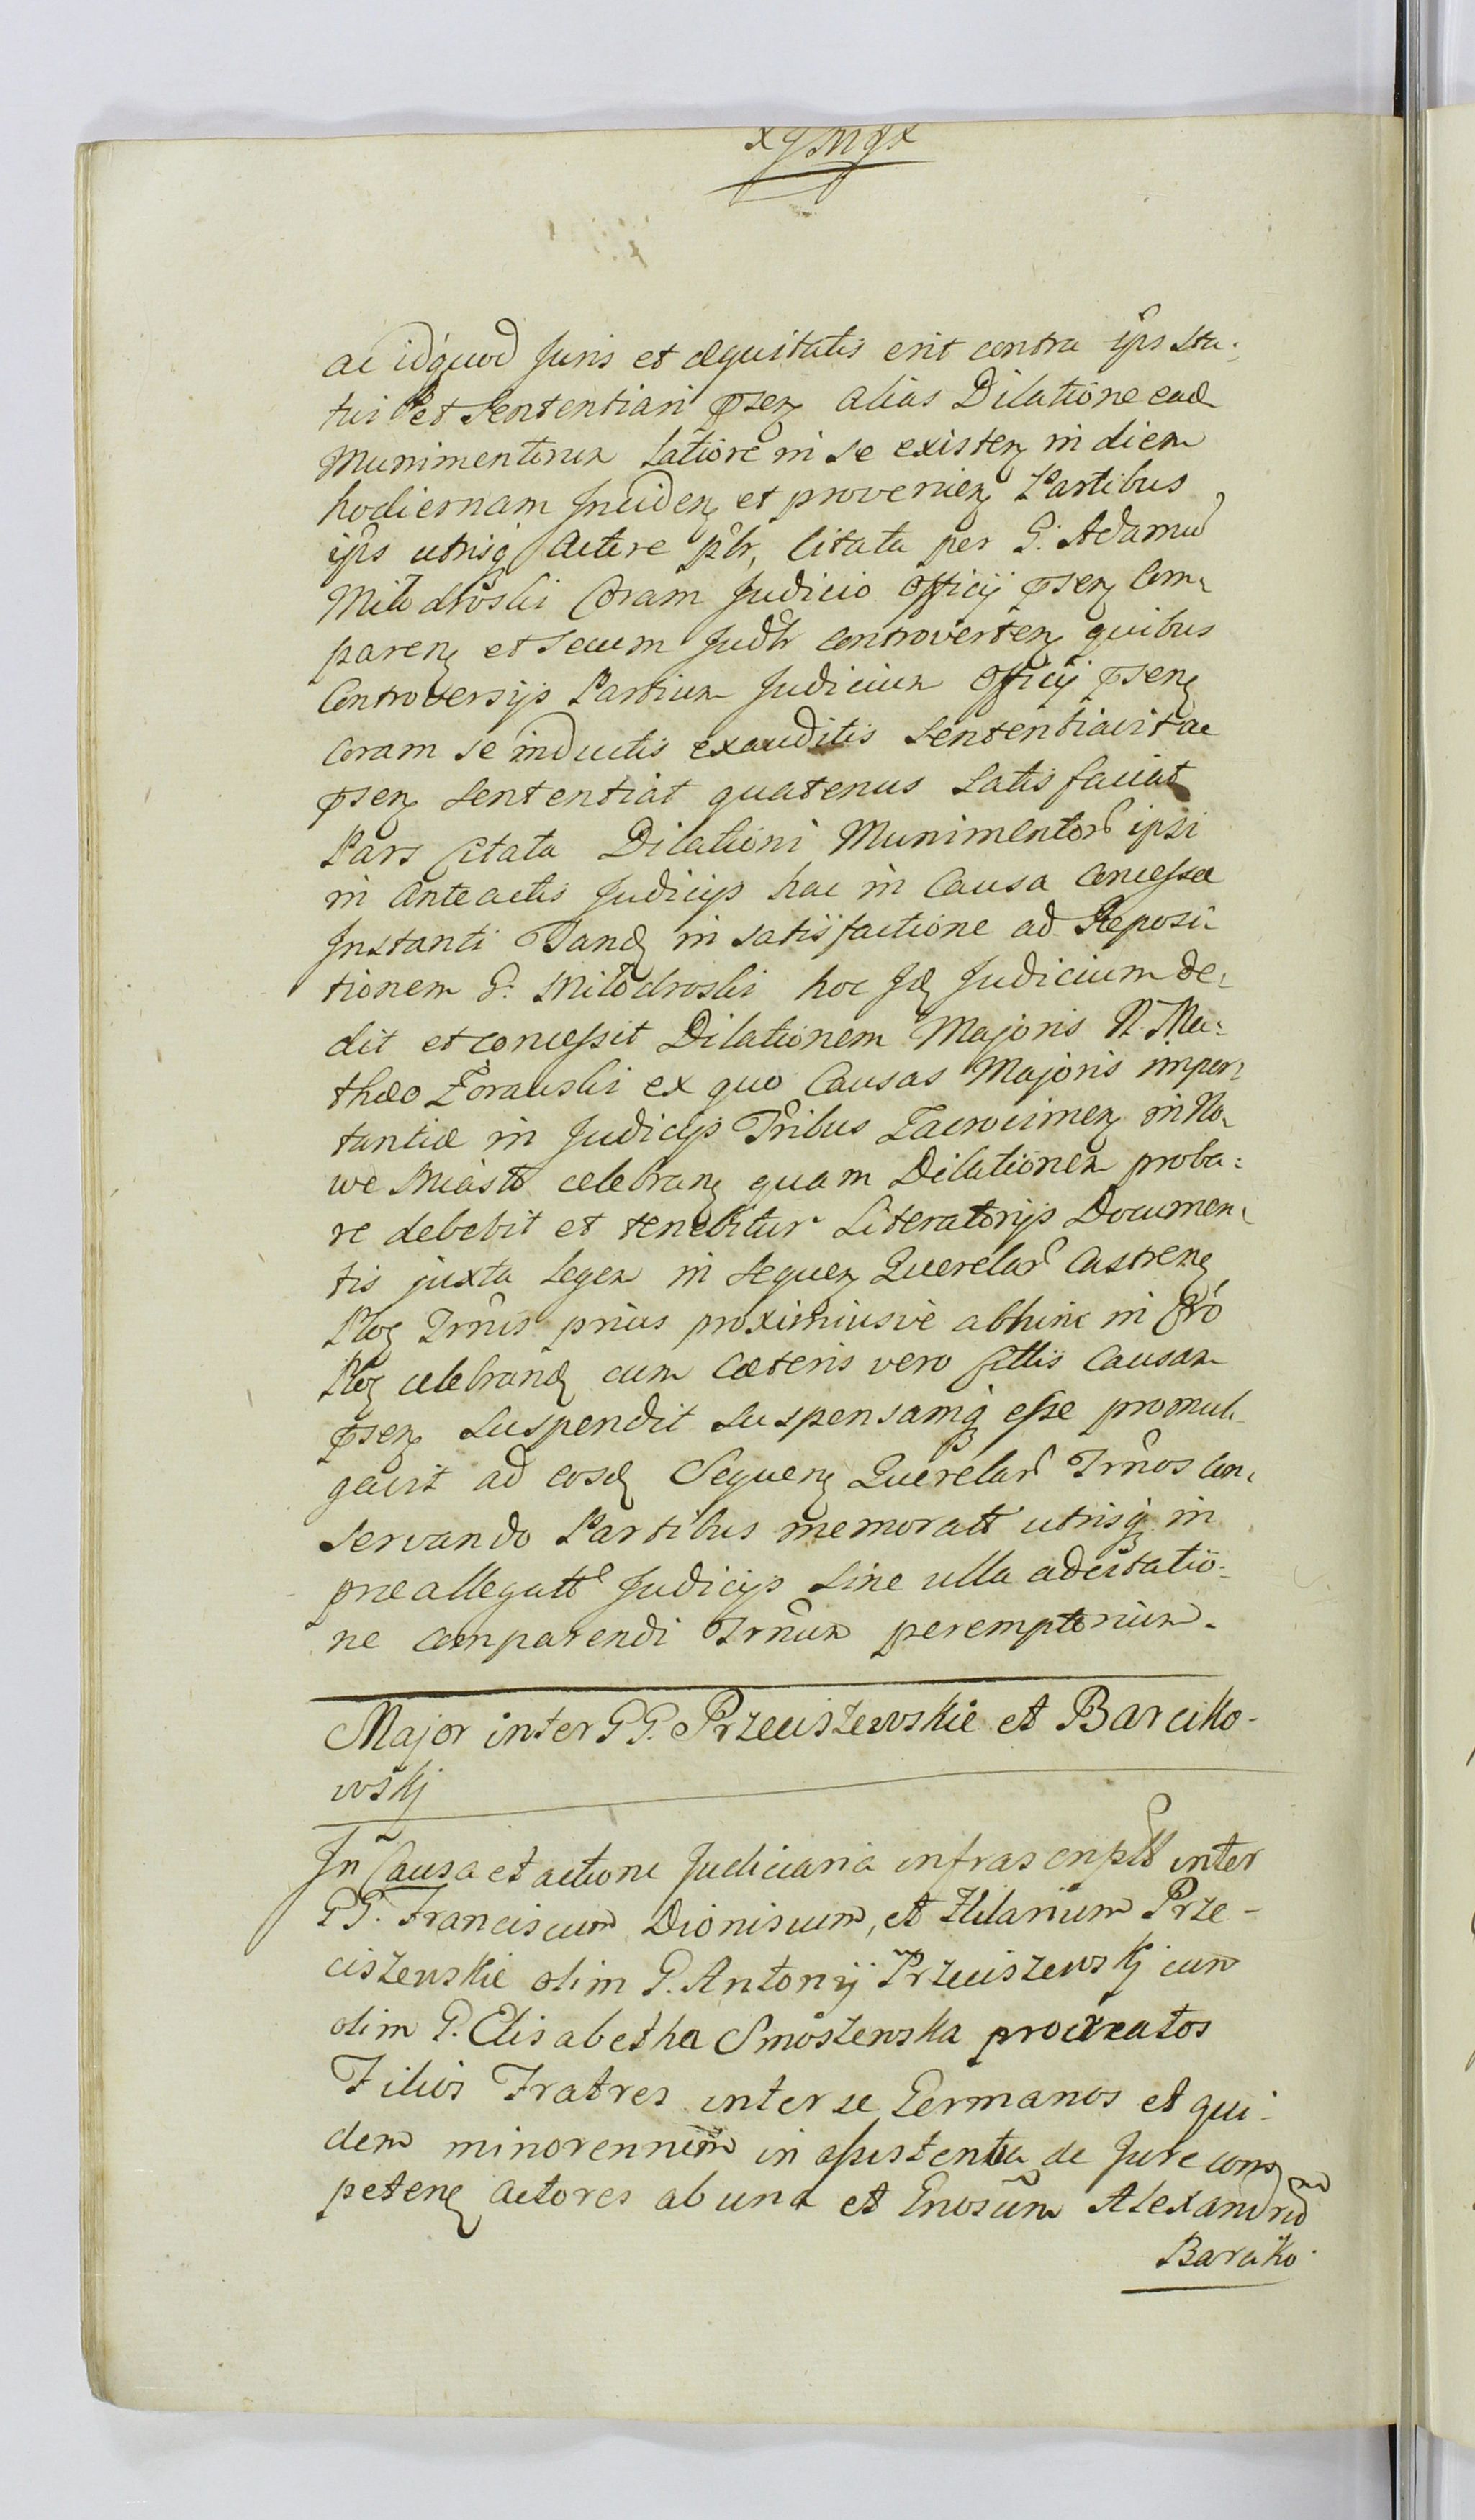 ac id quod Juris et æquitatis erit contra ips sta:
tui et Sententiari psen alias Dilatione ead
Munimentorum latiore in se existen in diem
hodiernam Inciden et provenien Partibus
ips utrisq Actore plr, Citata per G. Adamu
Miłodroski Coram Judicio Officij psen Com
paren et secum Judlr Controverten quibus
Controversijs Partium Judicium Officij psen
Coram se inductis exauditis Sententiavit ac
psen Sententiat quatenus Satis faciat
Pars Citata Dilationi Munimentor ipsi
in anteactis Judicijs hac in Causa Concessæ
Instanti Tand in satisfactione ad Reposi
tionem G. Miłodroski hoc Id Judicium de:
dit et concessit Dilationem Majoris N. Ma:
thæo Zorauski ex quo Causas Majoris impor
tantiæ in Judicijs Tribus Zacrocimen in No
we Miasto celebran quam Dilationem proba:
re debebit et tenebitur Literatorijs Documen
tis juxta Legem in Sequen Querelar Castren
Ploc Trnis prius proximiusve abhinc in Gro
Ploc celebrand cum Cæteris vero Cittis Causam
psen Suspendit suspensamq esse promul
gavit ad eosd Sequen Querelar Trnos Con
servando Partibus memoratt utrisq in
præallegatt Judicijs Sine ulla adcitatio:
ne comparendi Trnum peremptorium.
Major inter GG. Przeciszewskie et Barciko-
wskj
In Causa et actione Judiciaria infrascriptt inter
GG. Franciscum Dionisium, et Hilarium Prze-
ciszewskie olim G. Antonij Przeciszewskj cum
olim G. Elisabetha Smoszewska procreatos
Filios Fratres inter se Germanos et qui-
dem minorennem in assistentia de Jure com
peten Actores ab una et Gnosum Alexandru
Barciko